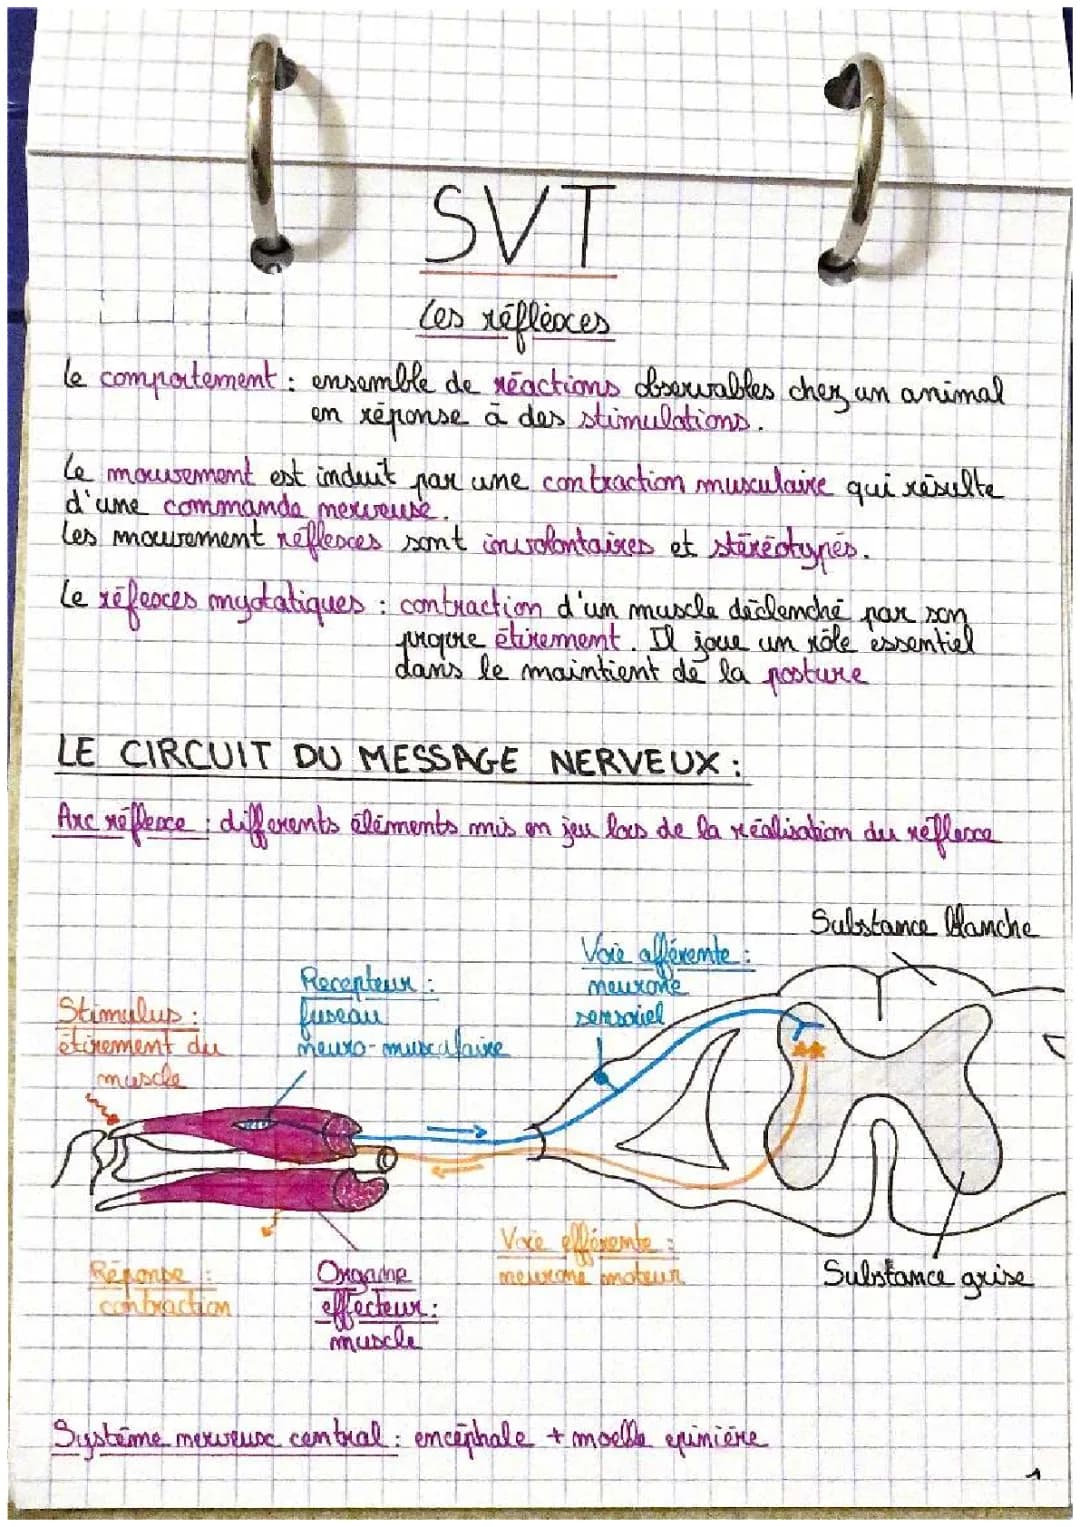 SVT
Les réflexes
Le comportement : ensemble de réactions observables chez un animal
en réponse à des stimulations.
Le mouvement est induit par une contraction musculaire qui résulte
d'une commande nerveuse.
Les mouvement réflexes sont involontaires et stéréotypés.
Le réfexes myotatiques : contraction d'un muscle déclenché par son
propre étirement. Il joue un rôle essentiel
dans le maintient de la posture
LE CIRCUIT DU MESSAGE NERVEUX :
Arc réflexe : differents éléments mis en jeu lors de la réalisation du réflexe
Substance blanche
Voie afférente :
neurone
sensoriel
Recepteur :
fuseau
neuro-musculaire
Stimulus :
étirement du
muscle
Voie efférente :
neurone moteur
Réponse :
contraction
Organne
effecteur :
muscle
Substance grise
Système nerveux central : encéphale + moelle épinière
1